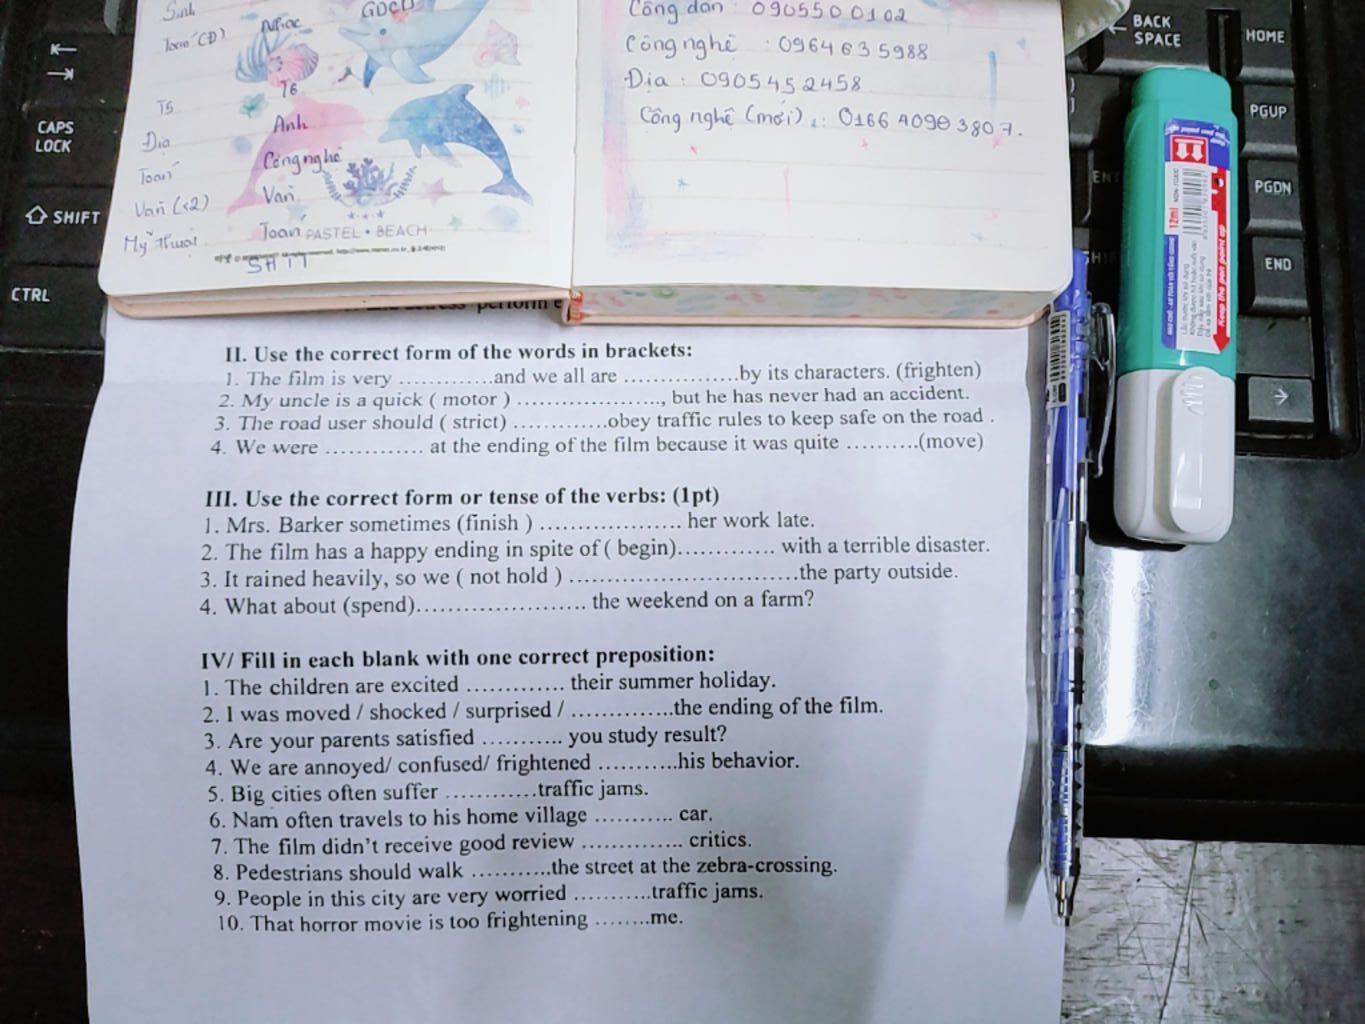 Sinh
Toán (CĐ)
T5
Địa
Toán
Văn (x2)
Mỹ thuật
Nhạc
GDCD
T6
Anh
Công nghệ
Văn
Toán
SHTT
PASTEL • BEACH
Công dân : 0905500102
Công nghệ : 0964635988
Địa : 0905452458
Công nghệ (mới) : 016640903807.
BACK SPACE
HOME
PGUP
PGDN
END
CAPS LOCK
SHIFT
CTRL
12ml
Keep the pen point up
perform
II. Use the correct form of the words in brackets:
1. The film is very .............and we all are ................by its characters. (frighten)
2. My uncle is a quick ( motor ) ...................., but he has never had an accident.
3. The road user should ( strict) .............obey traffic rules to keep safe on the road .
4. We were ............. at the ending of the film because it was quite ..........(move)
III. Use the correct form or tense of the verbs: (1pt)
1. Mrs. Barker sometimes (finish ) ................... her work late.
2. The film has a happy ending in spite of ( begin)............. with a terrible disaster.
3. It rained heavily, so we ( not hold ) ...............................the party outside.
4. What about (spend)....................... the weekend on a farm?
IV/ Fill in each blank with one correct preposition:
1. The children are excited ............. their summer holiday.
2. I was moved / shocked / surprised / ..............the ending of the film.
3. Are your parents satisfied ........... you study result?
4. We are annoyed/ confused/ frightened ...........his behavior.
5. Big cities often suffer ............traffic jams.
6. Nam often travels to his home village ........... car.
7. The film didn't receive good review .............. critics.
8. Pedestrians should walk ...........the street at the zebra-crossing.
9. People in this city are very worried ...........traffic jams.
10. That horror movie is too frightening ........me.